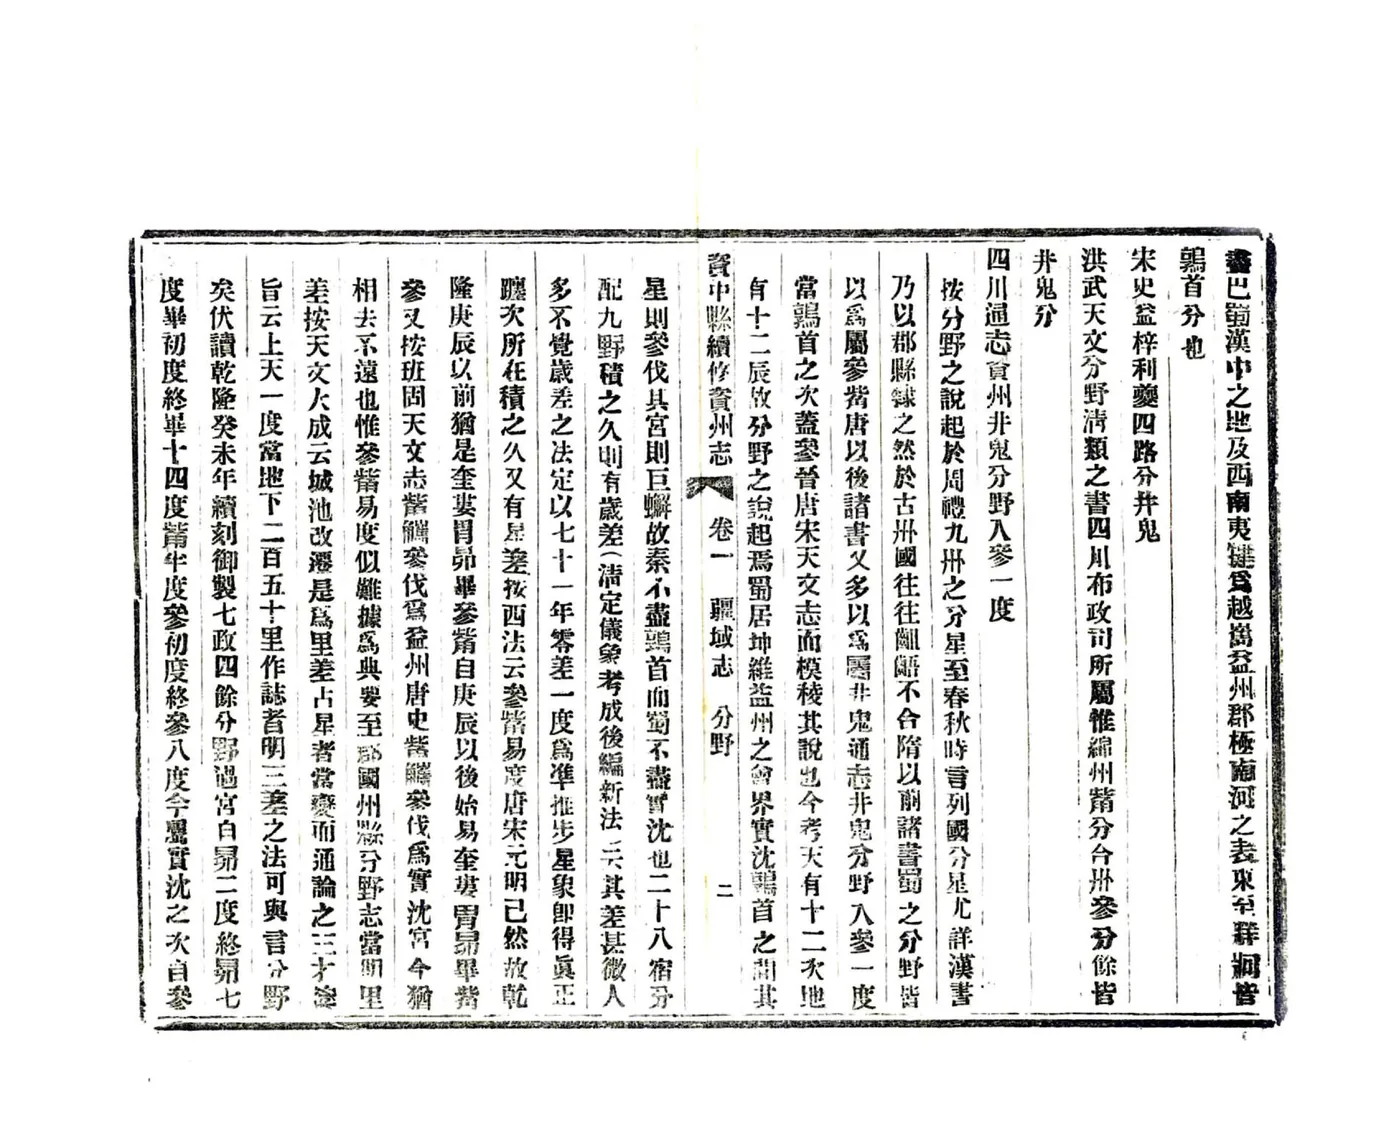 盡巴蜀漢中之地及西南夷犍爲越嶲益州郡極南河之表東至牂牁皆
鶉首分也
宋史益梓利夔四路分井鬼
洪武天文分野淸類之書四川布政司所屬惟綿州觜分合州參分餘皆
井鬼分
四川通志資州井鬼分野入參一度
按分野之說起於周禮九州之分星至春秋時言列國分星尤詳漢書
乃以郡縣隸之然於古州國往往齟齬不合隋以前諸書蜀之分野皆
以爲屬參觜唐以後諸書又多以爲屬井鬼通志井鬼分野入參一度
當鶉首之次蓋參晉唐宋天文志而模稜其說也今考天有十二次地
有十二辰故分野之說起焉蜀居坤維益州之會界實沈鶉首之間其
資中縣續修資州志 卷一 疆域志 分野 二
星則參伐其宮則巨蠏故秦不盡鶉首而蜀不盡實沈也二十八宿分
配九野積之久則有歲差(淸定儀象考成後編新法云其差甚微人
多不覺歲差之法定以七十一年零差一度爲準推步星象卽得眞正
躔次所在積之久又有星差按西法云參觜易度唐宋元明已然故乾
隆庚辰以前猶是奎婁胃昴畢參觜自庚辰以後始易奎婁胃昴畢觜
參又按班固天文志觜觿參伐爲益州唐史觜觿參伐爲實沈宮今猶
相去不遠也惟參觜易度似難據爲典要至郡國州縣分野志當明里
差按天文大成云城池改遷是爲里差占星者當變而通論之三才發
旨云上天一度當地下二百五十里作誌者明三差之法可與言分野
矣伏讀乾隆癸未年續刻御製七政四餘分野過宮白昴二度終昴七
度畢初度終畢十四度觜半度參初度終參八度今屬實沈之次自參